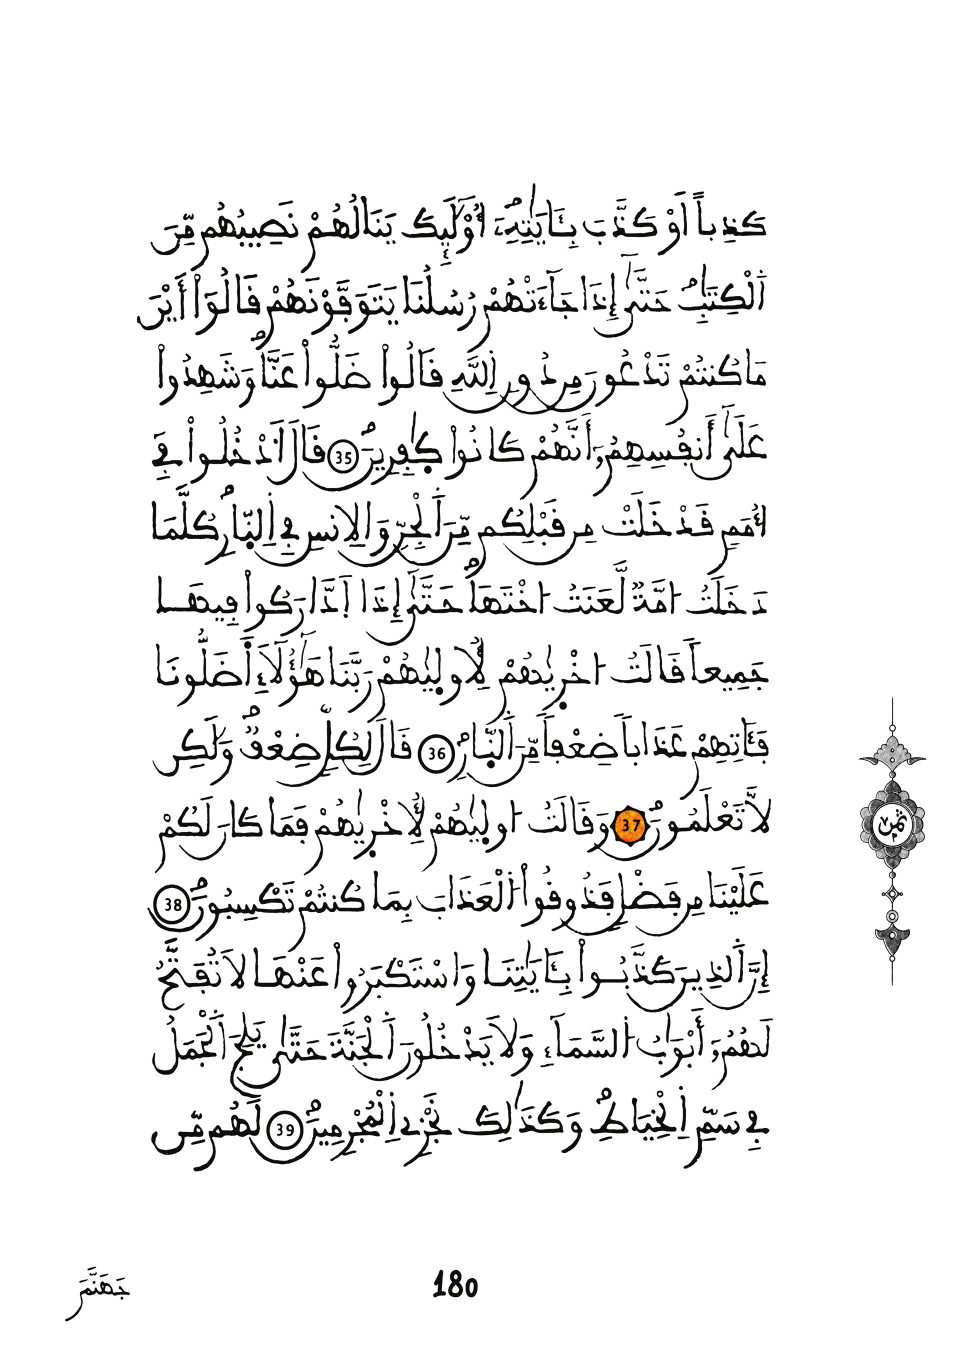 كَذِباً اَوْ كَذَّبَ بِـَٔايَٰتِهِۦٓۖ أُوْلَٰٓئِكَ يَنَالُهُمْ نَصِيبُهُم مِّنَ
اَ۬لْكِتَٰبِۖ حَتَّىٰٓ إِذَا جَآءَتْهُمْ رُسُلُنَا يَتَوَفَّوْنَهُمْ قَالُوٓاْ أَيْنَ
مَا كُنتُمْ تَدْعُونَ مِن دُونِ اِ۬للَّهِۖ قَالُواْ ضَلُّواْ عَنَّاۖ وَشَهِدُواْ
عَلَىٰٓ أَنفُسِهِمُۥٓ أَنَّهُمْ كَانُواْ كَٰفِرِينَۖ 35 قَالَ اَ۟دْخُلُواْ فِےٓ
أُمَمٖ قَدْ خَلَتْ مِن قَبْلِكُم مِّنَ اَ۬لْجِنِّ وَالِانسِ فِے اِ۬لنّ۪ارِۖ كُلَّمَا
دَخَلَتُ ا۟مَّةٞ لَّعَنَتُ ا۟خْتَهَاۖ حَتَّىٰٓ إِذَا اَ۪دَّارَكُواْ فِيهَا
جَمِيعاٗ قَالَتُ ا۟خْر۪يٰهُمْ لِأُول۪يٰهُمْ رَبَّنَا هَٰٓؤُلَآءِ اَ۬ضَلُّونَا
فَـَٔاتِهِمْ عَذَاباٗ ضِعْفاٗ مِّنَ اَ۬لنّ۪ارِۖ 36 قَالَ لِكُلّٖ ضِعْفٞۖ وَلَٰكِن
لَّا تَعْلَمُونَۖ 37 وَقَالَتُ ا۟ول۪يٰهُمْ لِأُخْر۪يٰهُمْ فَمَا كَانَ لَكُمْ
عَلَيْنَا مِن فَضْلٖ فَذُوقُواْ اُ۬لْعَذَابَ بِمَا كُنتُمْ تَكْسِبُونَۖ 38
إِنَّ اَ۬لذِينَ كَذَّبُواْ بِـَٔايَٰتِنَا وَاسْتَكْبَرُواْ عَنْهَا لَا تُفَتَّحُ
لَهُمُۥٓ أَبْوَٰبُ اُ۬لسَّمَآءِ وَلَا يَدْخُلُونَ اَ۬لْجَنَّةَ حَتَّىٰ يَلِجَ اَ۬لْجَمَلُ
فِے سَمِّ اِ۬لْخِيَاطِۖ وَكَذَٰلِكَ نَجْزِے اِ۬لْمُجْرِمِينَۖ 39 لَهُم مِّن
ثمن
جَهَنَّمَ
180